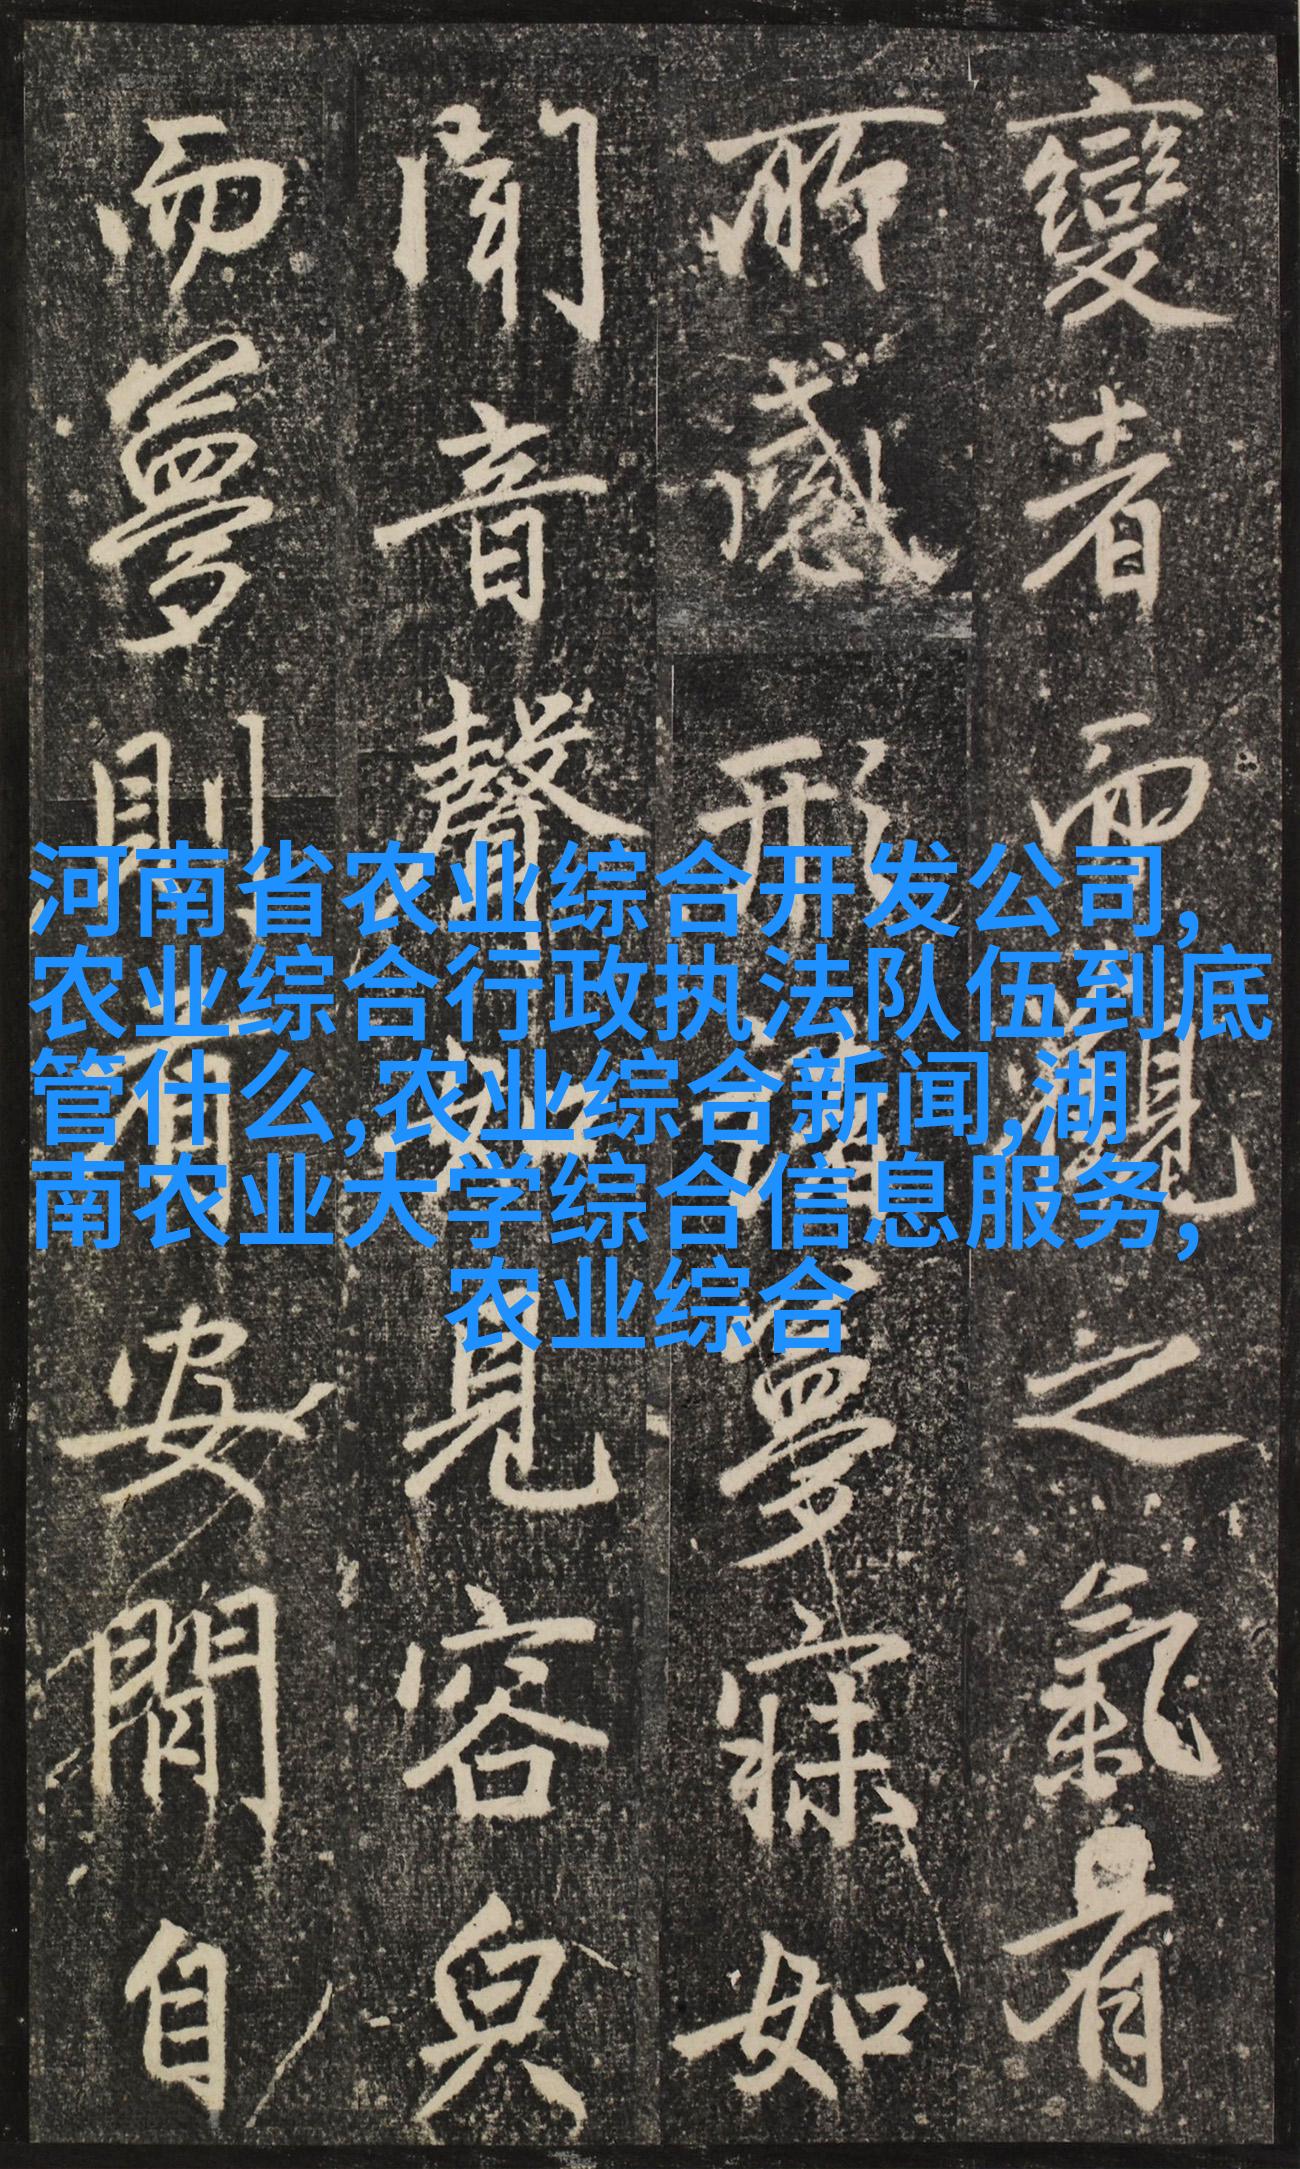 變者而觀之氣有
所感形諸夢寐如
聞音聲如見容皃
而夢則有安閒自
河南省农业综合开发公司,
农业综合行政执法队伍到底
管什么,农业综合新闻,湖
南农业大学综合信息服务,
农业综合